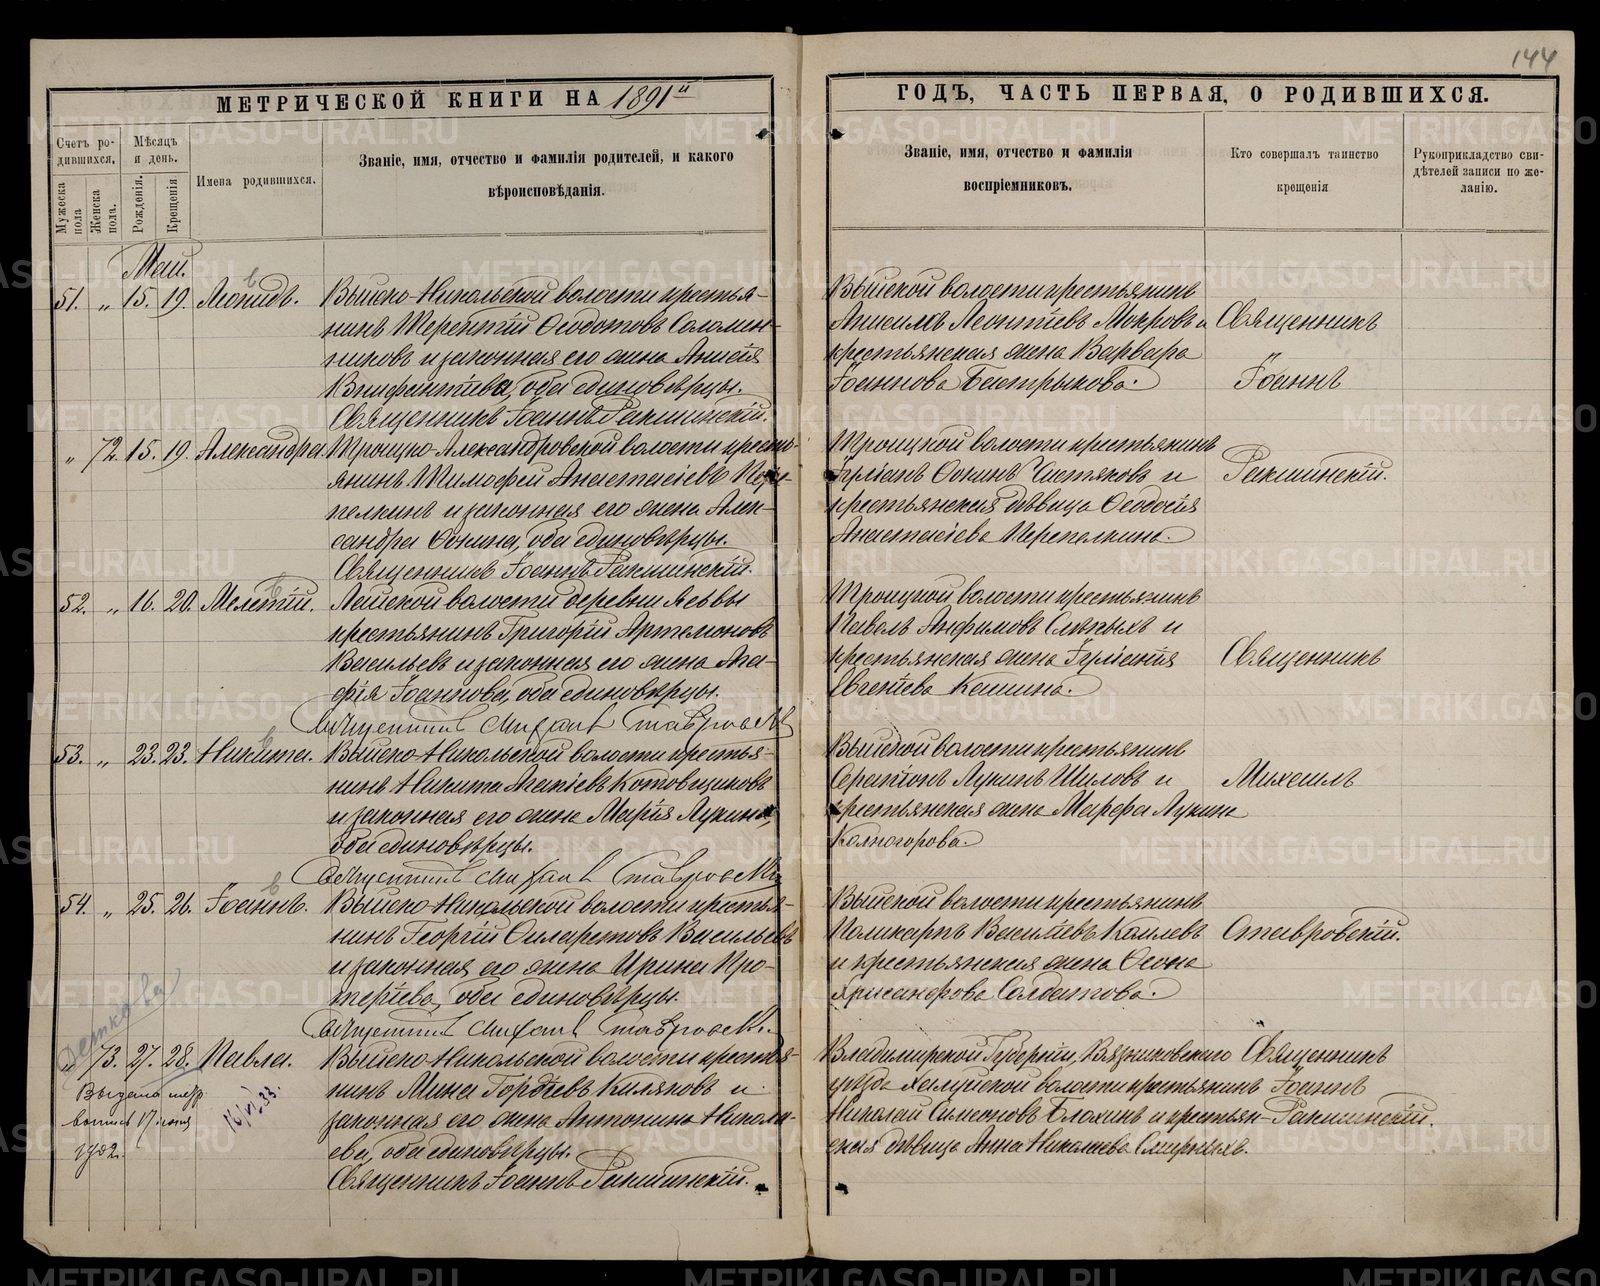 144
МЕТРИЧЕСКОЙ КНИГИ НА 1891й
ГОДЪ, ЧАСТЬ ПЕРВАЯ, О РОДИВШИХСЯ.
Счетъ ро-
дившихся.
Мужеска
пола
Женска
пола.
Мѣсяцъ
и день.
Рожденія.
Крещенія
Имена родившихся.
Званіе, имя, отчество и фамилія родителей, и какого
вѣроисповѣданія.
Званіе, имя, отчество и фамилія
воспріемниковъ.
Кто совершалъ таинство
крещенія
Рукоприкладство сви-
дѣтелей записи по же-
ланію.
Май.
51. „ 15. 19. Леонидъ. Выйско-Никольской волости крестья-
нинъ Терентій Ѳеодотовъ Соломен-
никовъ и законная его жена Анисія
Внифантіева, оба единовѣрцы.
Священникъ Іоаннъ Ракшинскій.
Выйской волости крестьянинъ
Анисимъ Леонтіевъ Мокровъ и
крестьянская жена Варвара
Іоаннова Бастрыкова.
Священникъ
Іоаннъ
„ 72. 15. 19. Александра. Троицко-Александровской волости кресть-
янинъ Тимофей Анастасіевъ
и законная его жена Алек-
сандра Осипина, оба единовѣрцы.
Священникъ Іоаннъ Ракшинскій.
Троицкой волости крестьянинъ
Чистяковъ и
крестьянская дѣвица Ѳеодосія
Анастасіева Перепелкина.
Ракшинскій.
52. „ 16. 20. Мелетій. Лайской волости деревни
крестьянинъ Григорій Артемоновъ
Васильевъ и законная его жена Ага-
фія Іоаннова, оба единовѣрцы.
Священникъ Михаилъ Ставровскій
Троицкой волости крестьянинъ
Павелъ Анфимовъ Слѣпыхъ и
крестьянская жена Іуліанія
Евгеніева Кашина.
Священникъ
53. „ 23. 23. Никита. Выйско-Никольской волости крестья-
нинъ Никита Агапіевъ Котовщиковъ
и законная его жена Марія Лукина,
оба единовѣрцы.
Священникъ Михаилъ Ставровскій
Выйской волости крестьянинъ
Серапіонъ Лукинъ Шиловъ и
крестьянская жена Марфа Лукина
Колногорова.
Михаилъ
54. „ 25. 26. Іоаннъ. Выйско-Никольской волости крестья-
нинъ Георгій Филаретовъ Васильевъ
и законная его жена Ирина Про-
теріева, оба единовѣрцы.
Священникъ Михаилъ Ставровскій
Выйской волости крестьянинъ
Поликарпъ Василіевъ Копылевъ
и крестьянская жена Ѳеона
Солдатова.
Ставровскій.
„ 73. 27. 28. Павла. Выйско-Никольской волости крестья-
нинъ Мина Гордѣевъ Киляковъ и
законная его жена Антонина Никола-
ева, оба единовѣрцы.
Священникъ Іоаннъ Ракшинскій.
Владимірской Губерніи, Вязниковскаго
уѣзда Холуйской волости крестьянинъ
Николай Симеоновъ Блохинъ и крестьян-
ская дѣвица Анна Николаева Смирныхъ.
Священникъ
Іоаннъ
Ракшинскій.
Выдана метр.
выпись 17 іюня
1902.